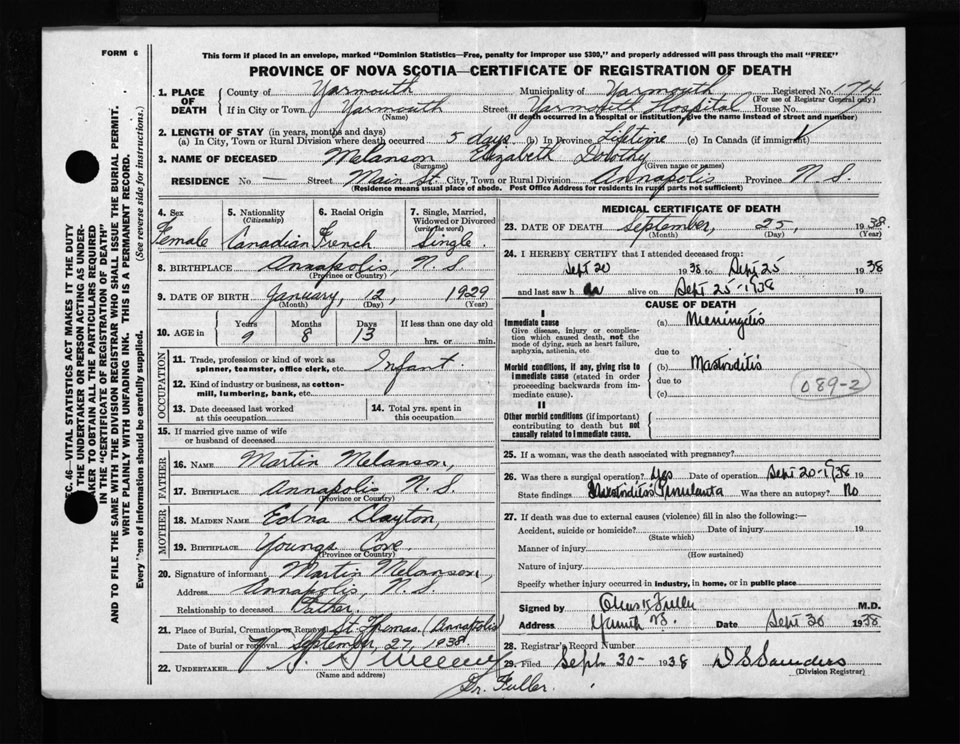 FORM 6
This form if placed in an envelope, marked "Dominion Statistics—Free, penalty for improper use $300," and properly addressed will pass through the mail "FREE"
PROVINCE OF NOVA SCOTIA—CERTIFICATE OF REGISTRATION OF DEATH
1. PLACE OF DEATH
County of Yarmouth Municipality of Yarmouth, Registered No. 74
(For use of Registrar General only)
If in City or Town Yarmouth Street Yarmouth Hospital House No.
(Name) (If death occurred in a hospital or institution, give the name instead of street and number)
2. LENGTH OF STAY (in years, months and days)
(a) In City, Town or Rural Division where death occurred 5 days (b) In Province Lifetime (c) In Canada (if immigrant)
3. NAME OF DECEASED Melanson Elizabeth Dorothy
(Surname) (Given name or names)
RESIDENCE No. — Street Main St. City, Town or Rural Division Annapolis Province N.S.
(Residence means usual place of abode. Post Office Address for residents in rural parts not sufficient)
4. Sex 5. Nationality (Citizenship) 6. Racial Origin 7. Single, Married, Widowed or Divorced (write the word)
Female Canadian French Single.
8. BIRTHPLACE Annapolis, N.S.
(Province or Country)
9. DATE OF BIRTH January, 12, 1929
(Month) (Day) (Year)
10. AGE in Years Months Days If less than one day old
9 8 13 hrs. or min.
OCCUPATION
11. Trade, profession or kind of work as spinner, teamster, office clerk, etc. Infant.
12. Kind of industry or business, as cotton-mill, lumbering, bank, etc.
13. Date deceased last worked at this occupation
14. Total yrs. spent in this occupation
15. If married give name of wife or husband of deceased
FATHER
16. NAME Martin Melanson,
17. BIRTHPLACE Annapolis N.S.
(Province or Country)
MOTHER
18. MAIDEN NAME Edna Clayton,
19. BIRTHPLACE Youngs Cove
(Province or Country)
20. Signature of informant Martin Melanson,
Address Annapolis, N.S.
Relationship to deceased Father.
21. Place of Burial, Cremation or Removal St. Thomas. (Annapolis)
Date of burial or removal September, 27, 1938.
22. UNDERTAKER
(Name and address)
Dr. Fuller.
MEDICAL CERTIFICATE OF DEATH
23. DATE OF DEATH September, 25, 1938.
(Month) (Day) (Year)
24. I HEREBY CERTIFY that I attended deceased from:
Sept 20 1938 to Sept 25 1938
and last saw h er alive on Sept 25-1938 19
CAUSE OF DEATH
I
Immediate cause (a) Meningitis
Give disease, injury or complication which caused death, not the mode of dying, such as heart failure, asphyxia, asthenia, etc.
due to
Morbid conditions, if any, giving rise to immediate cause (stated in order proceeding backwards from immediate cause).
(b) Mastoiditis
due to
(c)
089-2
II
Other morbid conditions (if important) contributing to death but not causally related to immediate cause.
25. If a woman, was the death associated with pregnancy?
26. Was there a surgical operation? Yes Date of operation Sept 20-1938
State findings Mastoiditis Was there an autopsy? No
27. If death was due to external causes (violence) fill in also the following:—
Accident, suicide or homicide? Date of injury 19
(State which)
Manner of injury
(How sustained)
Nature of injury
Specify whether injury occurred in industry, in home, or in public place
Signed by Fuller M.D.
Address Date Sept 30 1938
28. Registrar's Record Number
29. Filed Sept. 30- 1938 D S Saunders
(Division Registrar)
SEC. 46—VITAL STATISTICS ACT MAKES IT THE DUTY
THE UNDERTAKER OR PERSON ACTING AS UNDER-
TAKER TO OBTAIN ALL THE PARTICULARS REQUIRED
IN THE "CERTIFICATE OF REGISTRATION OF DEATH"
AND TO FILE THE SAME WITH THE DIVISION REGISTRAR WHO SHALL ISSUE THE BURIAL PERMIT.
WRITE PLAINLY WITH UNFADING INK. THIS IS A PERMANENT RECORD.
Every item of information should be carefully supplied. (See reverse side for instructions.)